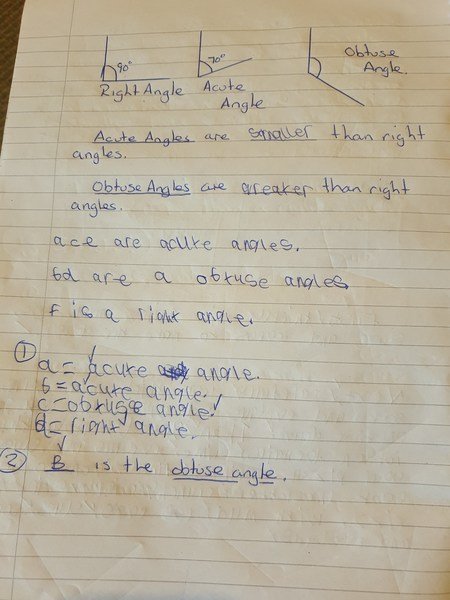 90°
70°
Obtuse
Angle.
Right Angle
Acute
Angle
Acute Angles are smaller than right
angles.
Obtuse Angles are greaker than right
angles.
ace are acute angles.
bd are a obtuse angles
f is a right angle.
① a = acute angle.
b = acute angle.
c = obtuse angle.
d = right angle.
② B is the obtuse angle.